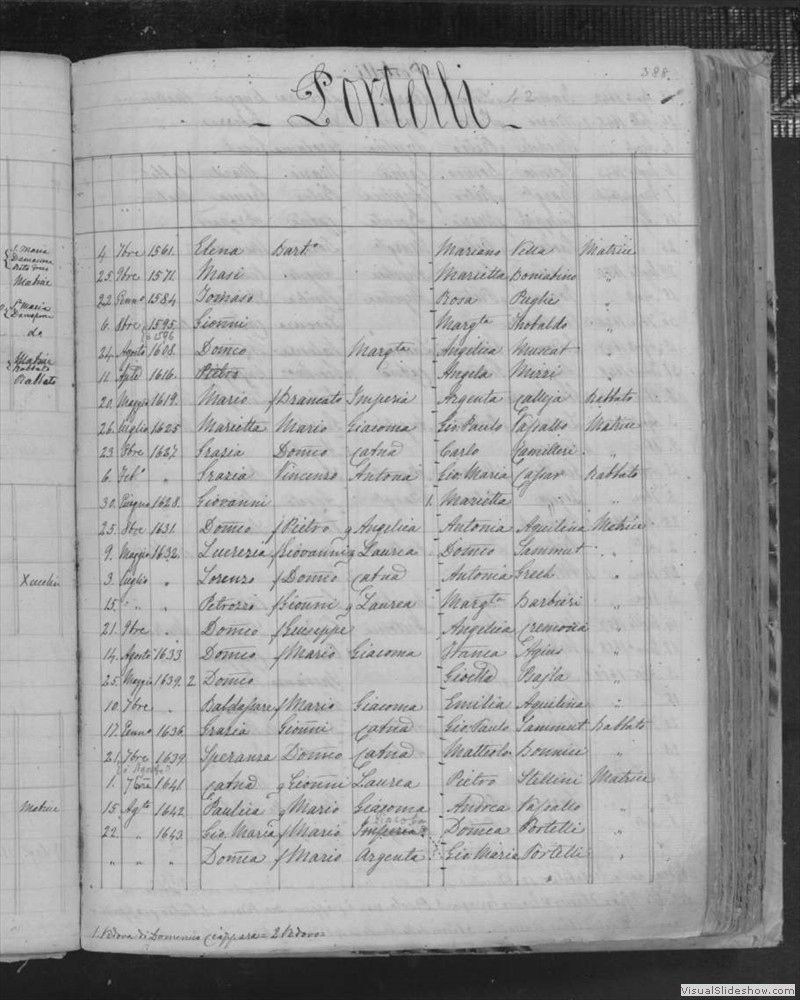 388.
Portelli
42
4 7bre 1561. Elena Bart.o Mariano Vella Matrice
25. 9bre 1571. Masi Marietta Boniatino "
22. Genno 1584 Tomaso Rosa Paglie "
6. 8bre 1595. Gionni Margta Theobaldo "
1596
24. Agosto 1608. Domco Margta Angelica Muscat "
11. Aple 1616. Pietro Angela Micci "
20. Maggio 1619. Mario f Brancato Imperia Argenta Calleja Rabbato
26. luglio 1625 Marietta Mario Giacoma Gio Paulo Vassallo Matrice
23 1627. Grazia Domco Catna Carlo Camilleri "
6. Feb.o " Grazia Vincenzo Antona Gio Maria Rabbato
30. Giugno 1628. Giovanni 1. Marietta " "
25. 8bre 1631. Domco f Pietro q Angelica Antonia Aquilina Matrice
9. Maggio 1632. Lucrezia f Giovanni q Laurea Domco Sammut "
3. luglio " Lorenzo f Domco Catna Antonia Grech "
15. " " Petrozzo f Gionni q Laurea Margta Barbieri "
21. 9bre " Domco f Giuseppe Angelica Cremona "
14. Agosto 1633 Domco f Mario Giacoma Bianca Agius "
25. Maggio 1639. 2 Domco Gioella Xajla "
10. 7bre " Baldassare f Mario Giacoma Emilia Aquilina "
17. Genno 1636. Grazia Gionni Catna Gio Paulo Sammut Rabbato
21. 7bre 1639. Speranza Domco Catna Matteolo Bonnici "
o Agosto
1. 7bre 1641. Catna q Gionni Laurea Pietro Stellini Matrice
15. Agto 1642. Paulica q Mario Giacoma Andrea Vassallo "
Giacoba
22. " 1643 Gio. Maria f Mario Imperia Domca Portelli "
" " " Domca f Mario Argenta Gio Maria Portelli "
1. Vedova di Domenico Ciappara = 2 Vedovo
S. Maria
Damascena
Matrice
S. Maria
Damascena
do
Matrice
Rabbato
Rabbato
Matrice
VisualSlideshow.com